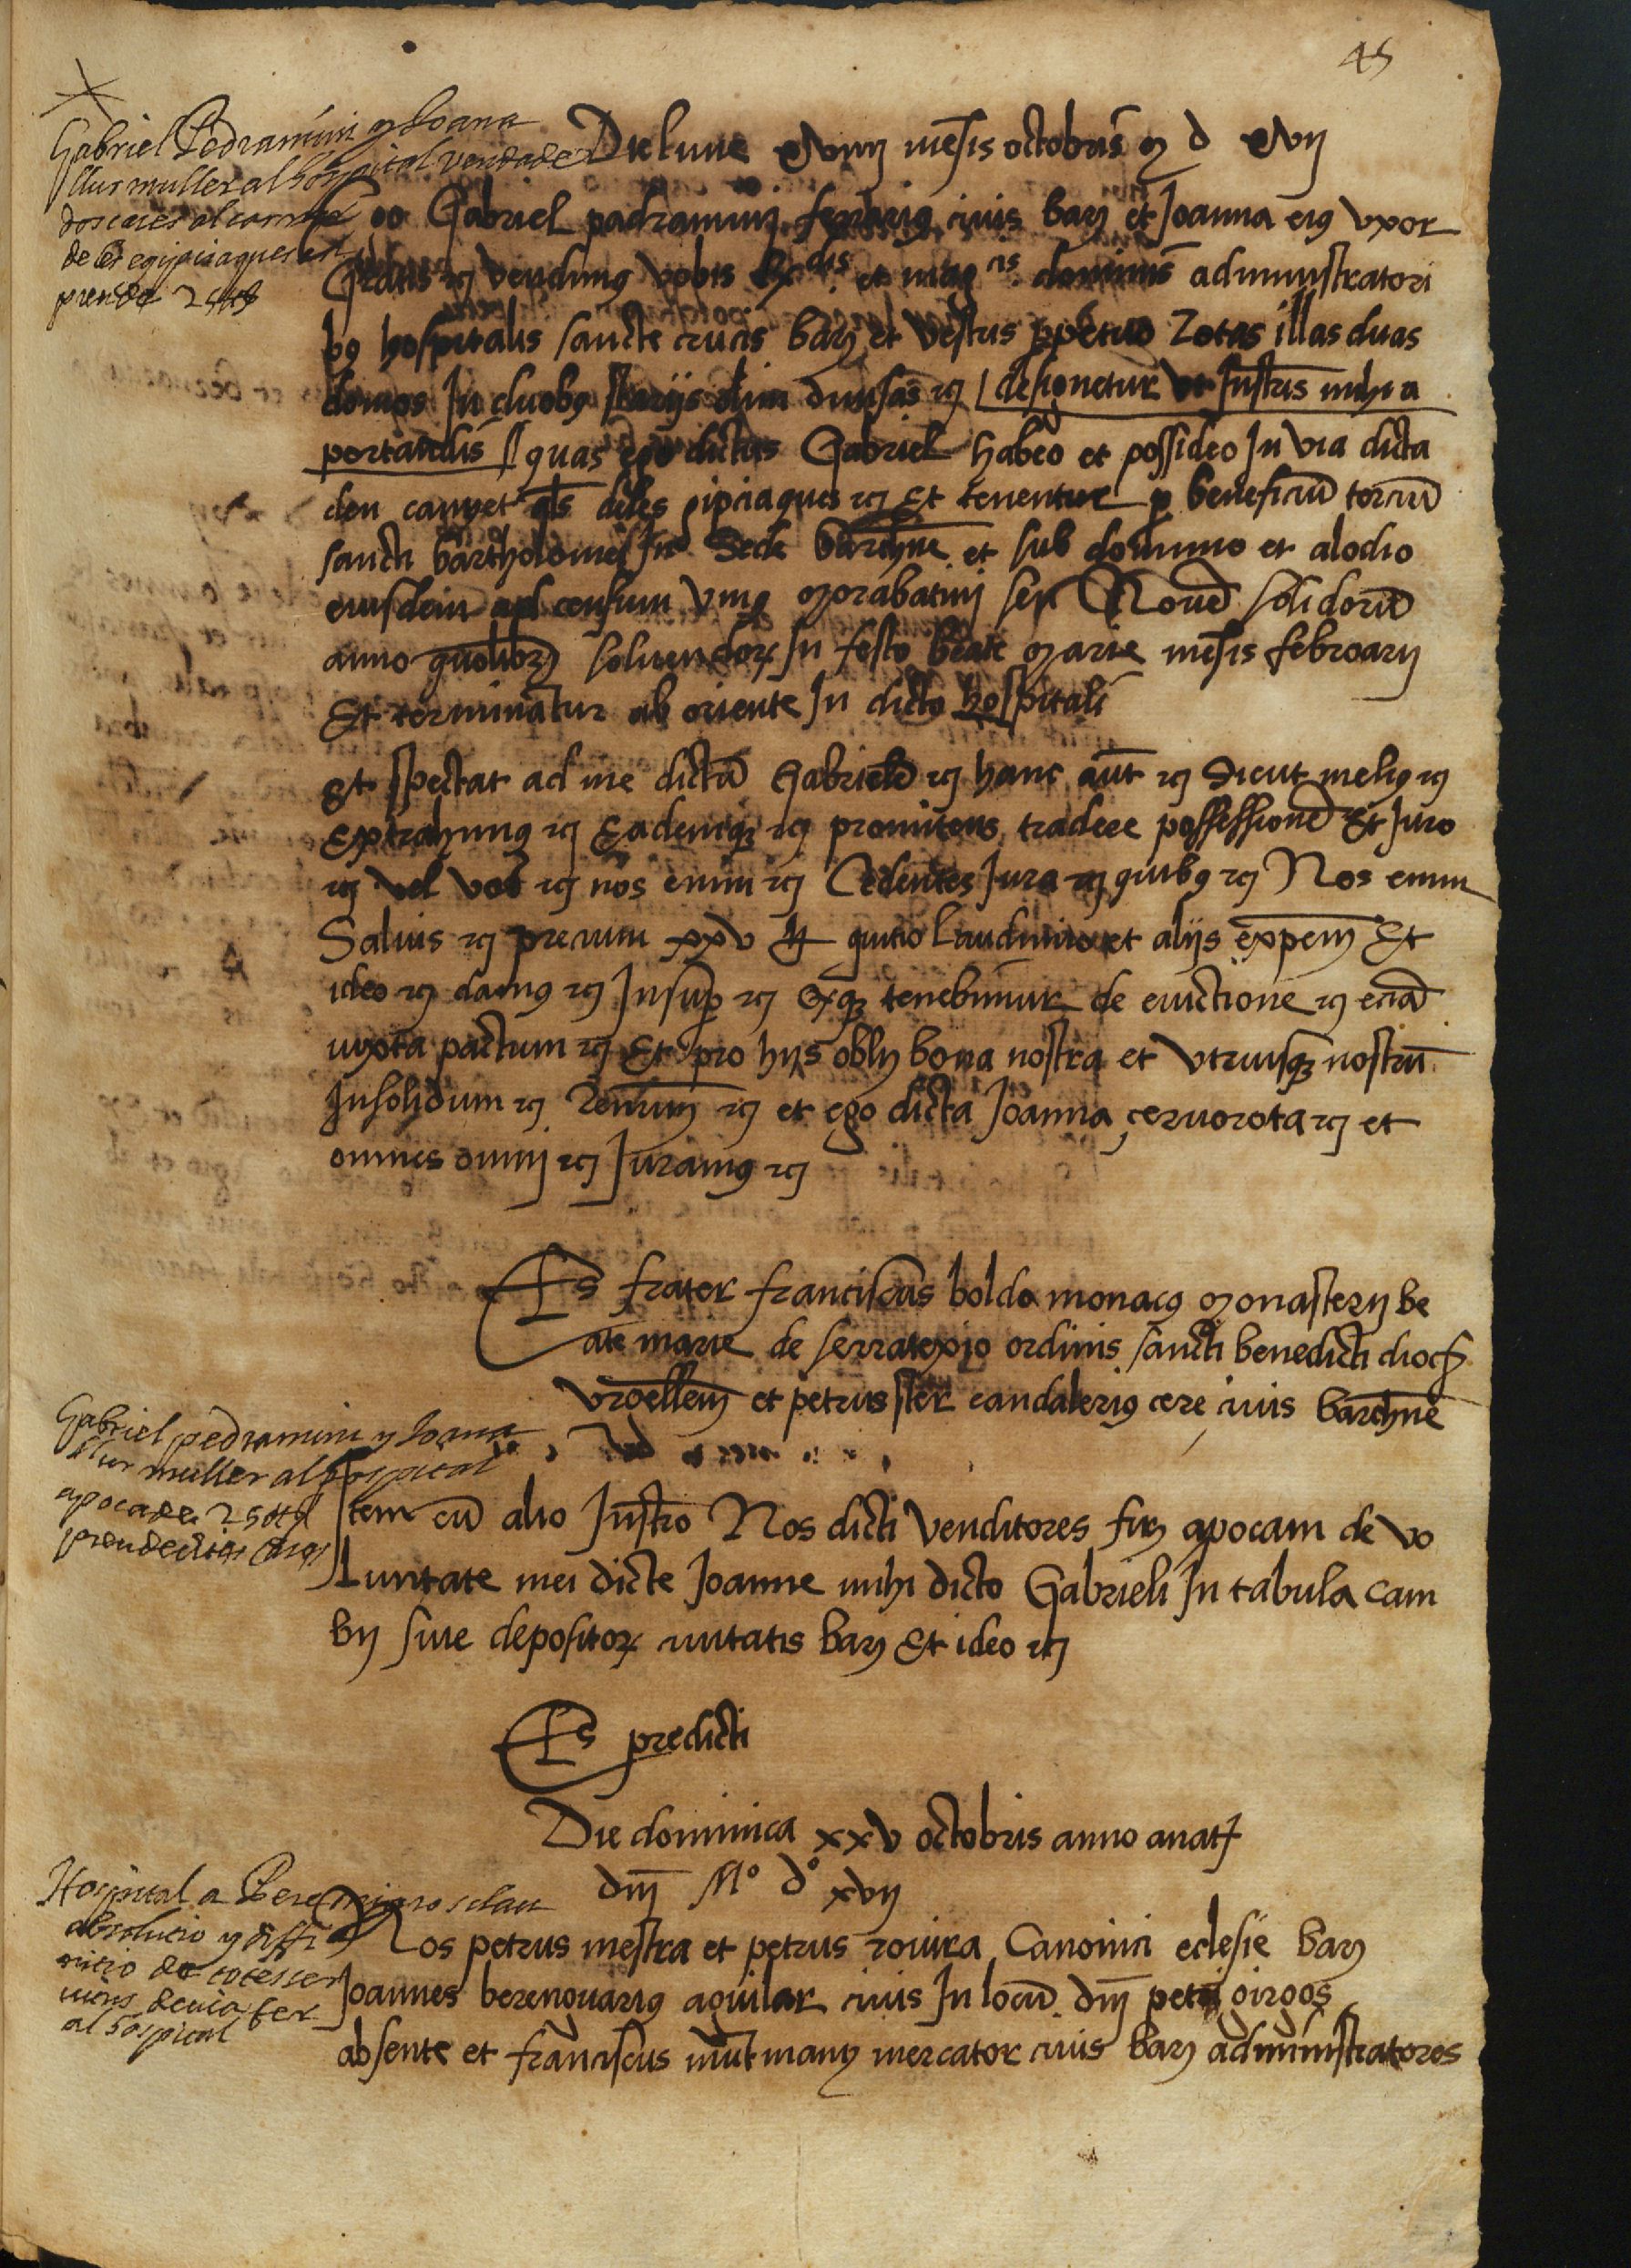 45
Gabriel Pedramini y Joana
sa muller al hospital venda de
dos cases al carrer
de les egipciaques
Die lune mesis octobris M d xvij
Ego Gabriel padramini civis barn et Joanna eiq uxor
Gratis rc vendimq vobis Rdis et magcis dominis administratori
bq hospitalis sancte crucis barn et vestris ppetuo Totas illas duas
domos In duobq stariis olim divisas rc designetur ut Instris mihi a
portandis quas ego dictus Gabriel habeo et possideo In via dicta
den canyet als deles gipciaques rc Et tenentur p beneficiu terciu
sancti bartholomei In Sede barchne et sub dominio et alodio
eiusdem ad censum Uniq Morabatini seu Noue solidoru
anno quolibz solvendor In festo beate Marie mesis febroarij
Et terminatur ab oriente In dicto hospitali
Et spectat ad me dictu Gabriele rc hanc aut rc Sicut meliq rc
Extrahimq rc Eademq rc promitens tradere possessione Et Juro
rc vel vos rc nos enim rc Cedentes Jura rc quibq rc Nos enim
Salvis rc precium xxv ll quitio Laudimio et aliis expens Et
ideo rc damq rc Insup rc tenebimur de evictione rc ecia
iuxta pactum rc Et pro hijs oblig bona nostra et Utriusq nostru
Insolidum rc rc et ego dicta Joanna cerciorota rc et
omnes omni rc Juramq rc
Ts frater franciscus boldo monacq Monasterij be
ate marie de serratexio ordinis sancti benedicti dioc
Urgellen et petrus ster candaleriq cere civis barchne
Gabriel pedramini y Joana
sa muller al hospital
apoca de 25 ll
Item cu alio Instro Nos dicti venditores firm apocam de vo
luntate mei dicte Joanne mihi dicto Gabrieli In tabula cam
bij sive depositor civitatis barn Et ideo rc
Ts predicti
Die dominica xxv octobris anno anat
dni Mº dº xvij
Hospital a Pere
absolucio y diffi
nicio de
al hospital
Nos petrus mestra et petrus rovira Canonici eclesie barn
Joannes berenguariq aguilar civis In locu dni petri girgos
absente et franciscus muntmany mercator civis barn administratores